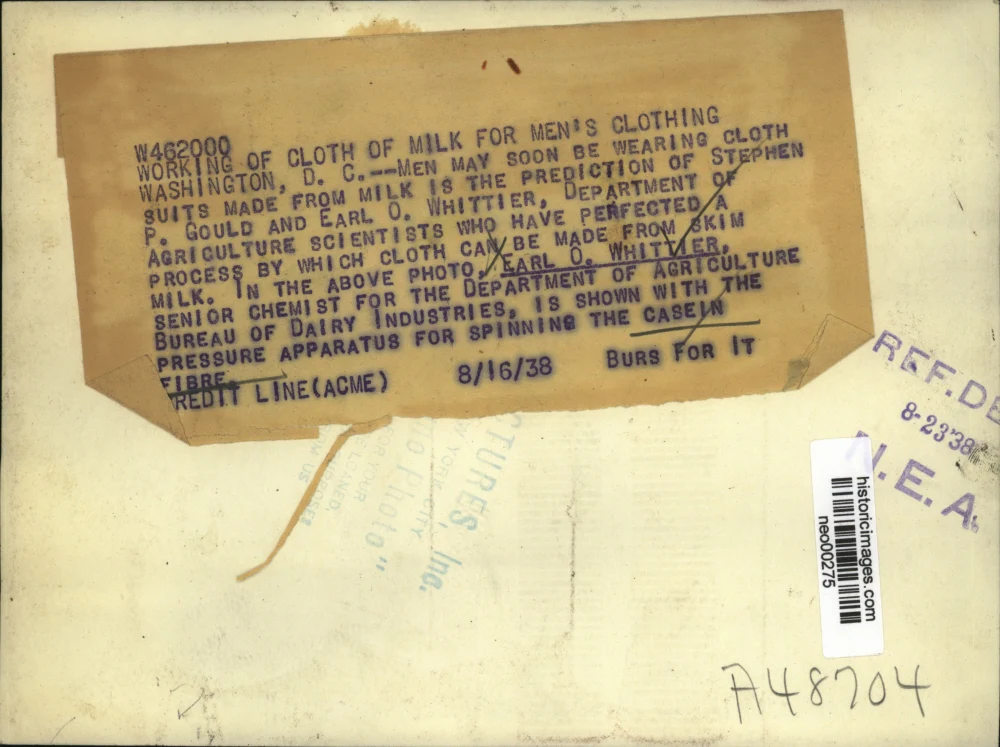 W462000
WORKING OF CLOTH OF MILK FOR MEN'S CLOTHING
WASHINGTON, D. C.--MEN MAY SOON BE WEARING CLOTH
SUITS MADE FROM MILK IS THE PREDICTION OF STEPHEN
P. GOULD AND EARL O. WHITTIER, DEPARTMENT OF
AGRICULTURE SCIENTISTS WHO HAVE PERFECTED A
PROCESS BY WHICH CLOTH CAN BE MADE FROM SKIM
MILK. IN THE ABOVE PHOTO, EARL O. WHITTIER,
SENIOR CHEMIST FOR THE DEPARTMENT OF AGRICULTURE
BUREAU OF DAIRY INDUSTRIES, IS SHOWN WITH THE
PRESSURE APPARATUS FOR SPINNING THE CASEIN
FIBRE.
REDIT LINE(ACME) 8/16/38 BURS FOR IT
REF.DE
8-23'38
N.E.A.
historicimages.com
neo00275
CTURES, Inc.
YORK CITY
Photo"
LOANED
A48704